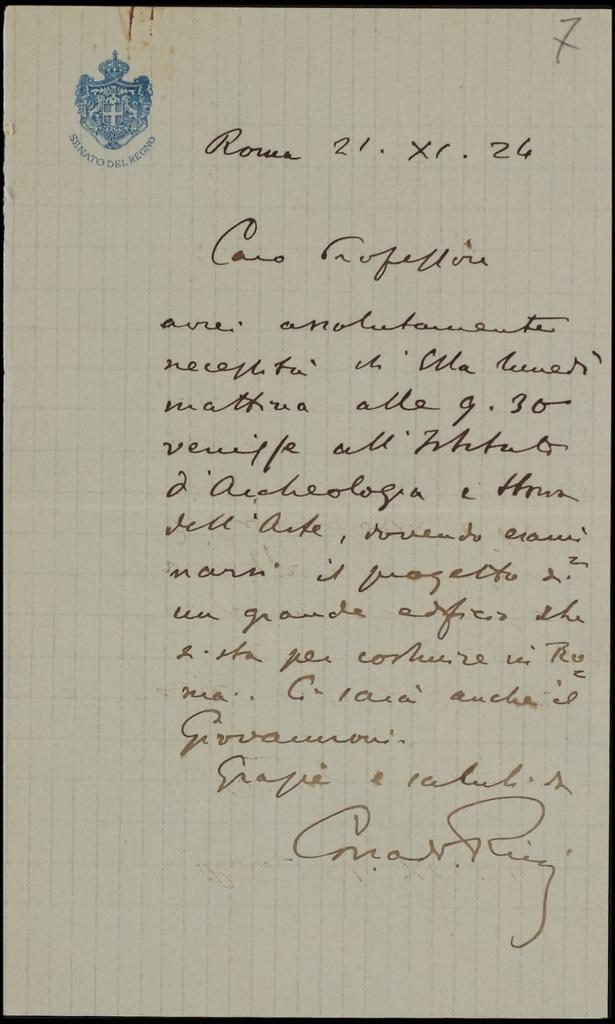 7
SENATO DEL REGNO
Roma 21. XI. 24
Caro Professore
avrei assolutamente
necessità ch'Ella lunedì
mattina alle 9.30
venisse all'Istituto
d'Archeologia e Storia
dell'Arte, dovendo esami
narsi il progetto di
un grande edificio che
si sta per costruire in Ro=
ma. Ci sarà anche il
Giovannoni.
Grazie e saluti di
Corrado Ricci